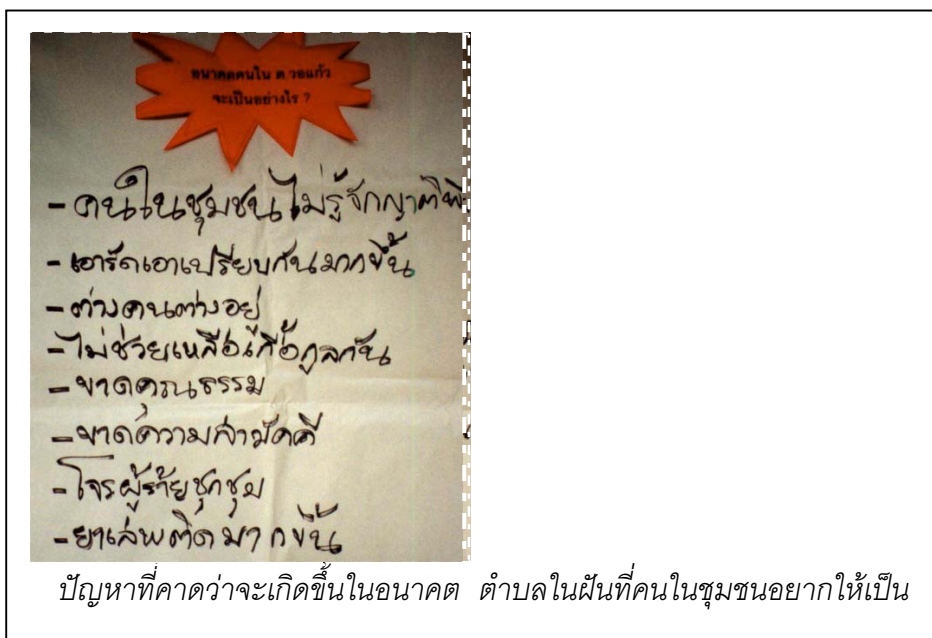 อนาคตคนใน ต.วอแก้ว
จะเป็นอย่างไร ?
- คนในชุมชนไม่รู้จักญาติพี่
- เอารัดเอาเปรียบกันมากขึ้น
- ต่างคนต่างอยู่
- ไม่ช่วยเหลือเกื้อกูลกัน
- ขาดคุณธรรม
- ขาดความสามัคคี
- โจรผู้ร้ายชุกชุม
- ยาเสพติดมากขึ้น
ปัญหาที่คาดว่าจะเกิดขึ้นในอนาคต ตำบลในฝันที่คนในชุมชนอยากให้เป็น